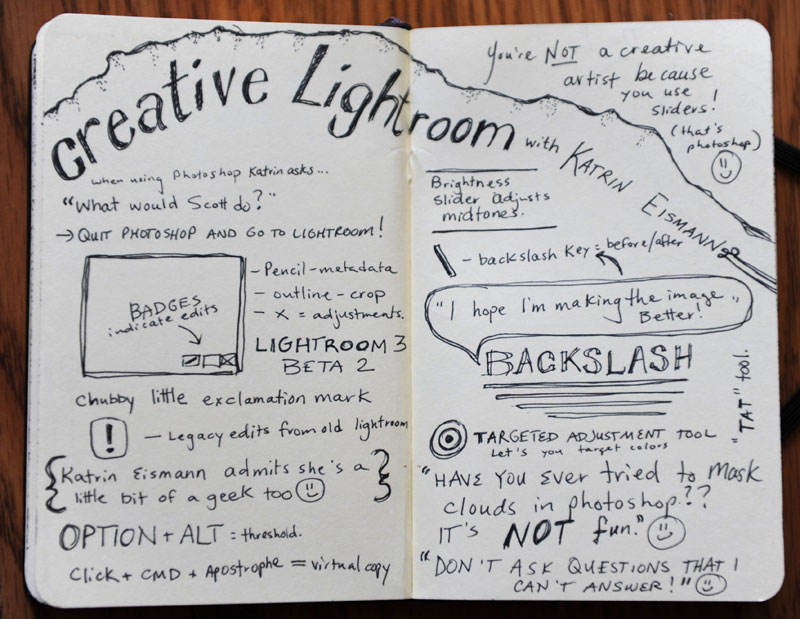 creative Lightroom with KATRIN EISMANN
when using Photoshop Katrin asks...
"What would Scott do?"
→ QUIT PHOTOSHOP AND GO TO LIGHTROOM!
BADGES
indicate edits
- Pencil - metadata
- outline - crop
- X = adjustments.
LIGHTROOM 3
BETA 2
Chubby little exclamation mark
! - Legacy edits from old lightroom
{Katrin Eismann admits she's a
little bit of a geek too}
OPTION + ALT = threshold.
Click + CMD + Apostrophe = virtual copy
You're NOT a creative
artist because
you use
sliders!
(that's
photoshop)
Brightness
slider adjusts
midtones.
\ - backslash Key = before/after
"I hope I'm making the image
Better!"
BACKSLASH
TARGETED ADJUSTMENT TOOL
Let's you target colors
"TAT" tool.
"HAVE YOU Ever tried to Mask
clouds in photoshop??
IT'S NOT fun."
"DON'T ASK QUESTIONS THAT I
CAN'T ANSWER!"